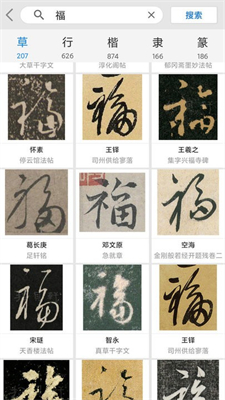 福
搜索
草 行 楷 隶 篆
207 626 874 166 186
大草千字文 淳化阁帖 郁冈斋墨妙法帖
福 福 福
怀素 王铎 王羲之
停云馆法帖 司州供给寥落 集字兴福寺碑
福 福 福
葛长庚 邓文原 空海
足轩铭 急就章 金刚般若经开题残卷二
福 福 福
宋璲 智永 王铎
天香楼法帖 真草千字文 司州供给寥落